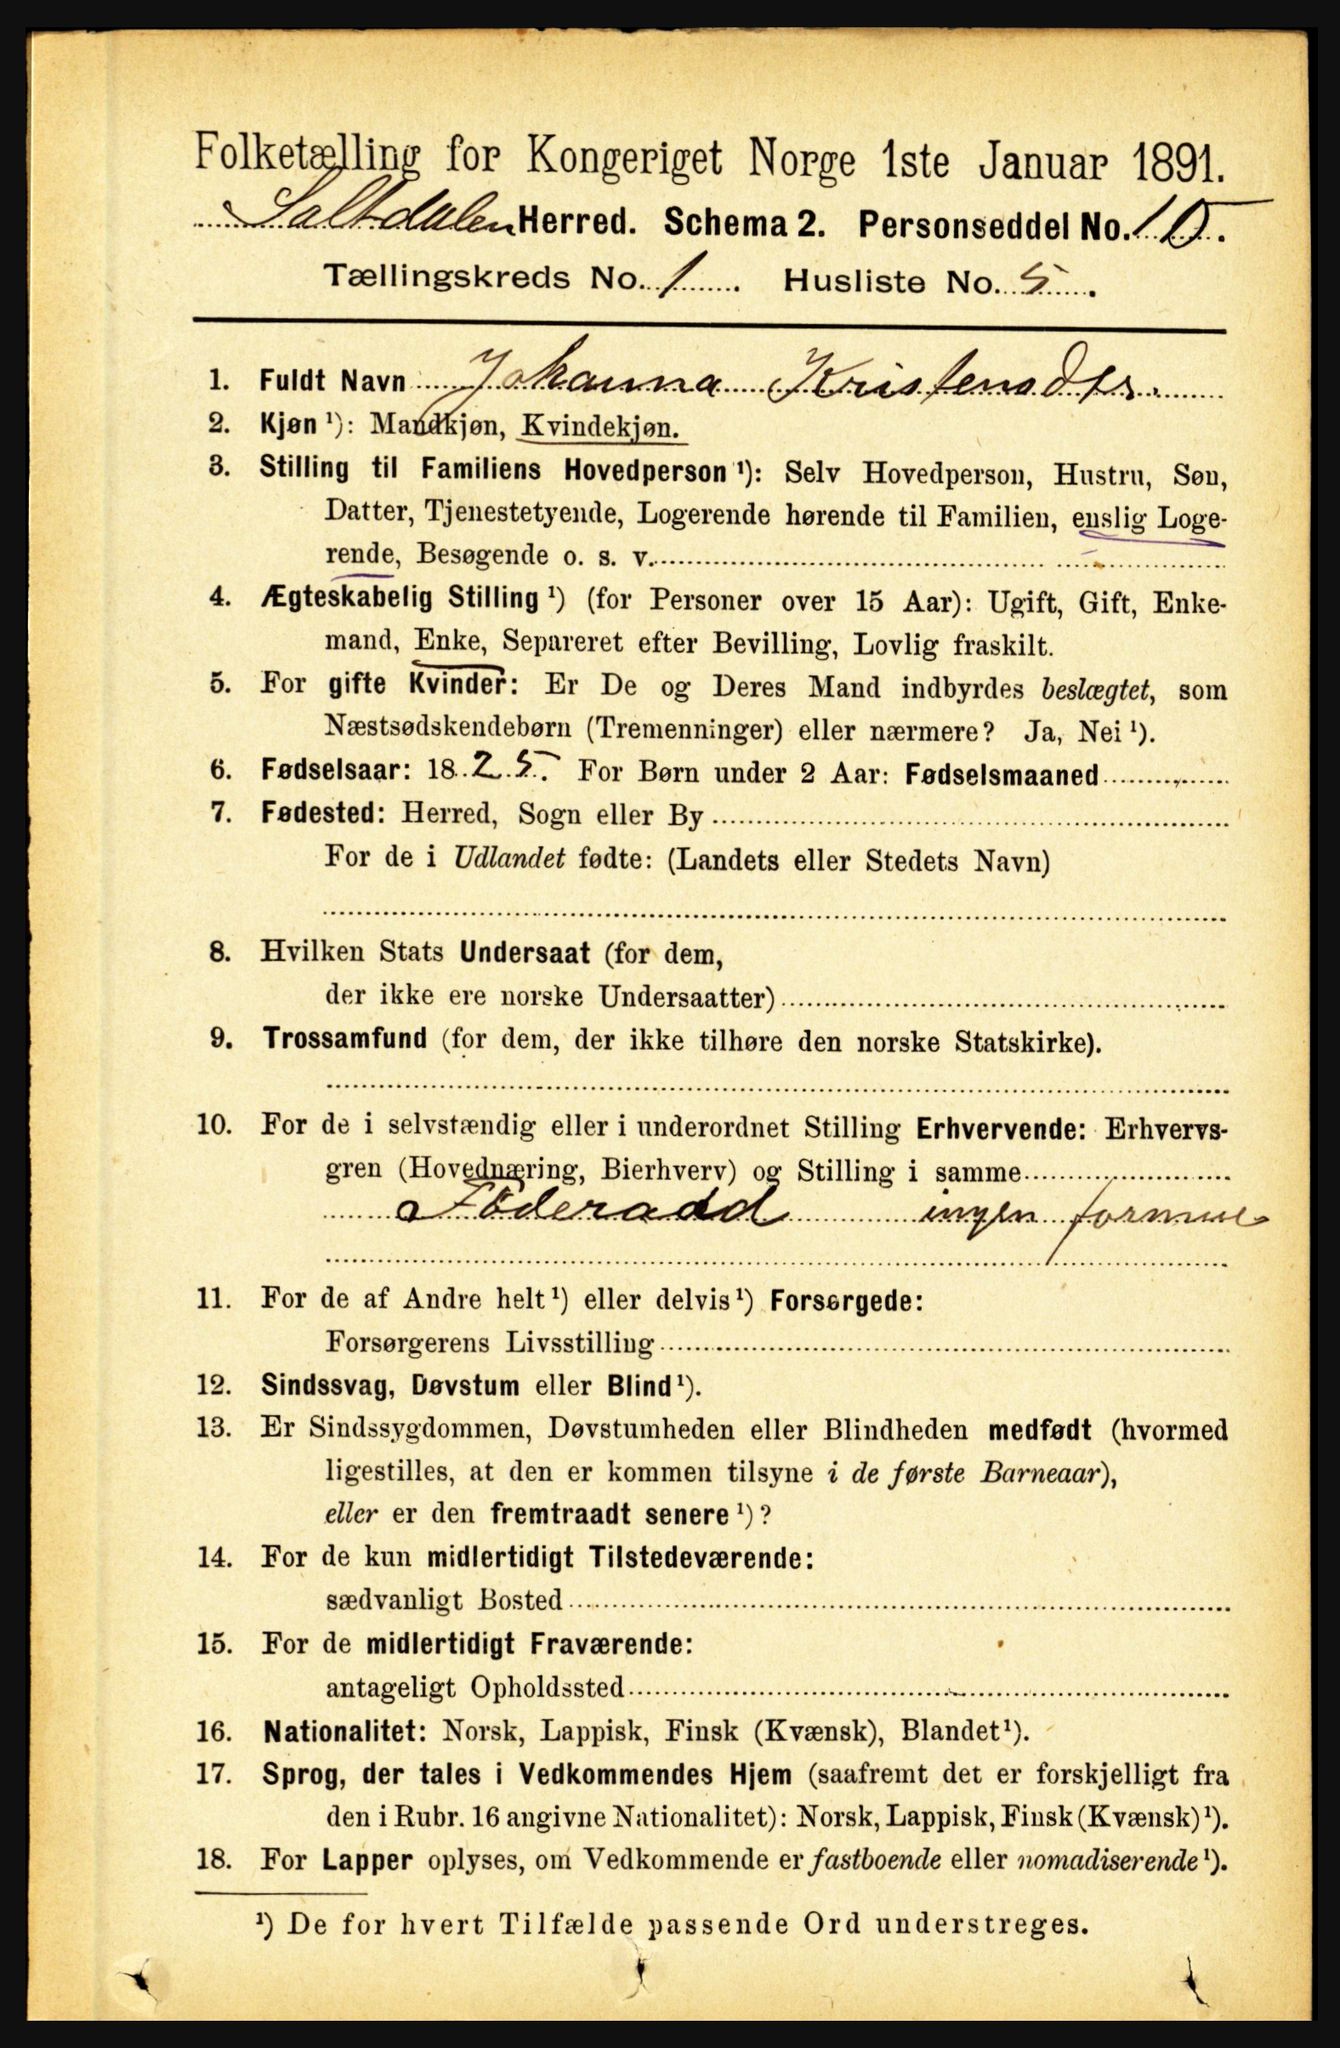 Folketælling for Kongeriget Norge 1ste Januar 1891.
Saltdalen Herred. Schema 2. Personseddel No. 10.
Tællingskreds No. 1. Husliste No. 5.
1. Fuldt Navn Johanna Kristensdtr.
2. Kjøn ¹): Mandkjøn, Kvindekjøn.
3. Stilling til Familiens Hovedperson ¹): Selv Hovedperson, Hustru, Søn,
Datter, Tjenestetyende, Logerende hørende til Familien, enslig Loge-
rende, Besøgende o. s. v.
4. Ægteskabelig Stilling ¹) (for Personer over 15 Aar): Ugift, Gift, Enke-
mand, Enke, Separeret efter Bevilling, Lovlig fraskilt.
5. For gifte Kvinder: Er De og Deres Mand indbyrdes beslægtet, som
Næstsødskendebørn (Tremenninger) eller nærmere? Ja, Nei ¹).
6. Fødselsaar: 1825. For Børn under 2 Aar: Fødselsmaaned
7. Fødested: Herred, Sogn eller By
For de i Udlandet fødte: (Landets eller Stedets Navn)
8. Hvilken Stats Undersaat (for dem,
der ikke ere norske Undersaatter)
9. Trossamfund (for dem, der ikke tilhøre den norske Statskirke).
10. For de i selvstændig eller i underordnet Stilling Erhvervende: Erhvervs-
gren (Hovednæring, Bierhverv) og Stilling i samme
Föderaad ingen formue
11. For de af Andre helt ¹) eller delvis ¹) Forsørgede:
Forsørgerens Livsstilling
12. Sindssvag, Døvstum eller Blind ¹).
13. Er Sindssygdommen, Døvstumheden eller Blindheden medfødt (hvormed
ligestilles, at den er kommen tilsyne i de første Barneaar),
eller er den fremtraadt senere ¹)?
14. For de kun midlertidigt Tilstedeværende:
sædvanligt Bosted
15. For de midlertidigt Fraværende:
antageligt Opholdssted
16. Nationalitet: Norsk, Lappisk, Finsk (Kvænsk), Blandet ¹).
17. Sprog, der tales i Vedkommendes Hjem (saafremt det er forskjelligt fra
den i Rubr. 16 angivne Nationalitet): Norsk, Lappisk, Finsk (Kvænsk) ¹).
18. For Lapper oplyses, om Vedkommende er fastboende eller nomadiserende ¹).
¹) De for hvert Tilfælde passende Ord understreges.